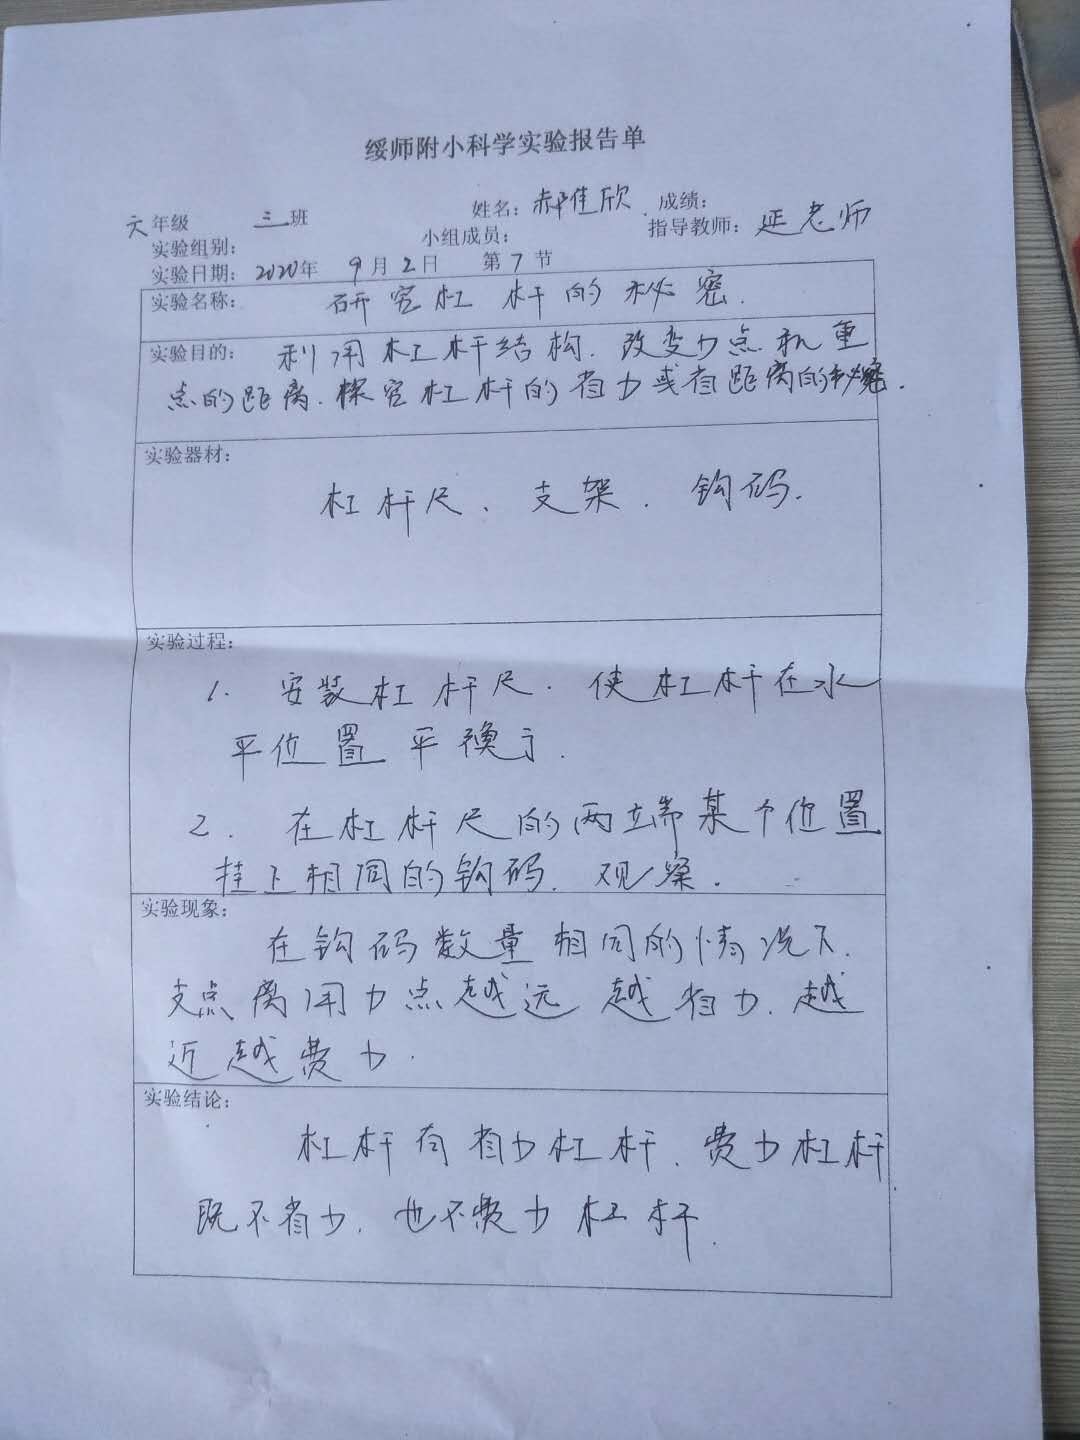 绥师附小科学实验报告单
六年级 三班 姓名：郝佳欣 成绩：
实验组别： 小组成员： 指导教师：延老师
实验日期：2020年 9月2日 第7节
实验名称： 研究杠杆的秘密.
实验目的： 利用杠杆结构.改变力点和重
点的距离.探究杠杆的省力或省距离的秘密.
实验器材：
杠杆尺、支架.钩码.
实验过程：
1. 安装杠杆尺.使杠杆在水
平位置平衡.
2. 在杠杆尺的两端某个位置
挂上相同的钩码.观察.
实验现象：
在钩码数量相同的情况下.
支点离用力点越远越省力.越
近越费力.
实验结论：
杠杆有省力杠杆.费力杠杆
既不省力.也不费力杠杆.